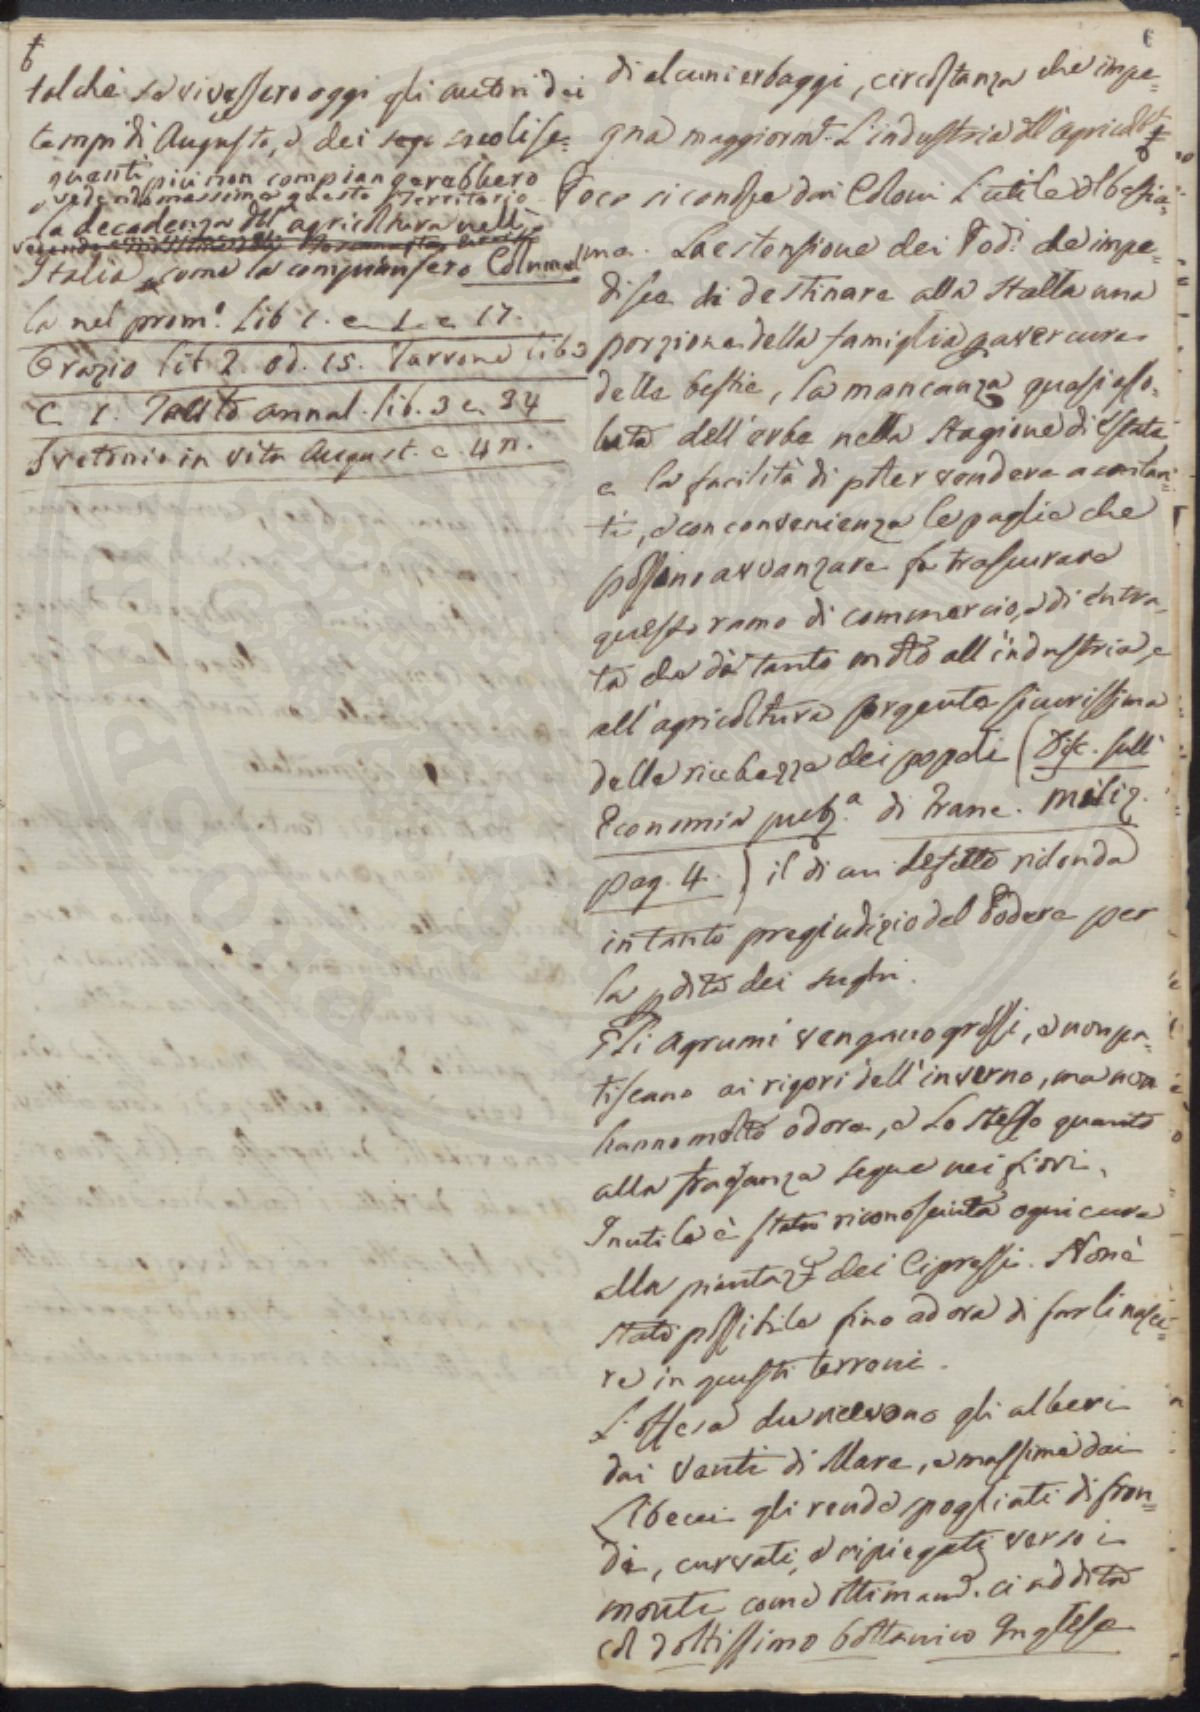 talchè se vivessero oggi gli autori dei
tempi di Augusto, e dei secoli se=
guenti più non compiangerebbero
vedendo massime questo Territorio
la decadenza dell'agricoltura nell'
Italia, come la compiansero Colume=
la nel prom.º Lib 1. e 1. e 17.
Orazio lib 2. od. 15. Varrone lib 3
C. 1. Tacito annal. lib. 3 c. 34
Svetonio in vita August. c. 42.
6
di alcuni erbaggi, circostanza che impe=
gna maggiorm.e L'industria dll'agricoltor
Poco si conosce dai Coloni L'utile dl bestia=
me. La estensione dei Pod.i che impe=
disce di destinare alla stalla una
porzione della famiglia p aver cura
delle bestie, la mancanza quasi aso=
luta dell'erbe nella stagione di Estate
e la facilità di poter vendere a contan=
ti, e con convenienza le paglie che
possino avvanzare fa trascurare
questo ramo di commercio, e di entra=
ta che dà tanto moto all'industria, e
all'agricoltura sorgente sicurissima
delle ricchezze dei popoli (Disc. sull'
Economia pub.a di Franc. Miliz.
pag. 4.) il di cui difetto ridonda
in tanto pregiudizio del Podere per
la pdita dei sughi.
Gli Agrumi vengano grossi, e non pa=
tiscano ai rigori dell'inverno, ma non
hanno molto odore, e Lo stesso quanto
alla fraganza segue nei fiori.
Inutile è stata riconosciuta ogni cura
alla piantaz.e dei Cipressi. Non è
stato possibile fino ad ora di farli nasce=
re in questi terreni.
L'offesa che ricevono gli alberi
dai Venti di Mare, e massime dai
Libecci gli rende spogliati di fron=
di, curvati, e ripiegati verso i
monti come ottimam.e ci addita
col dottissimo bottanico Inglese